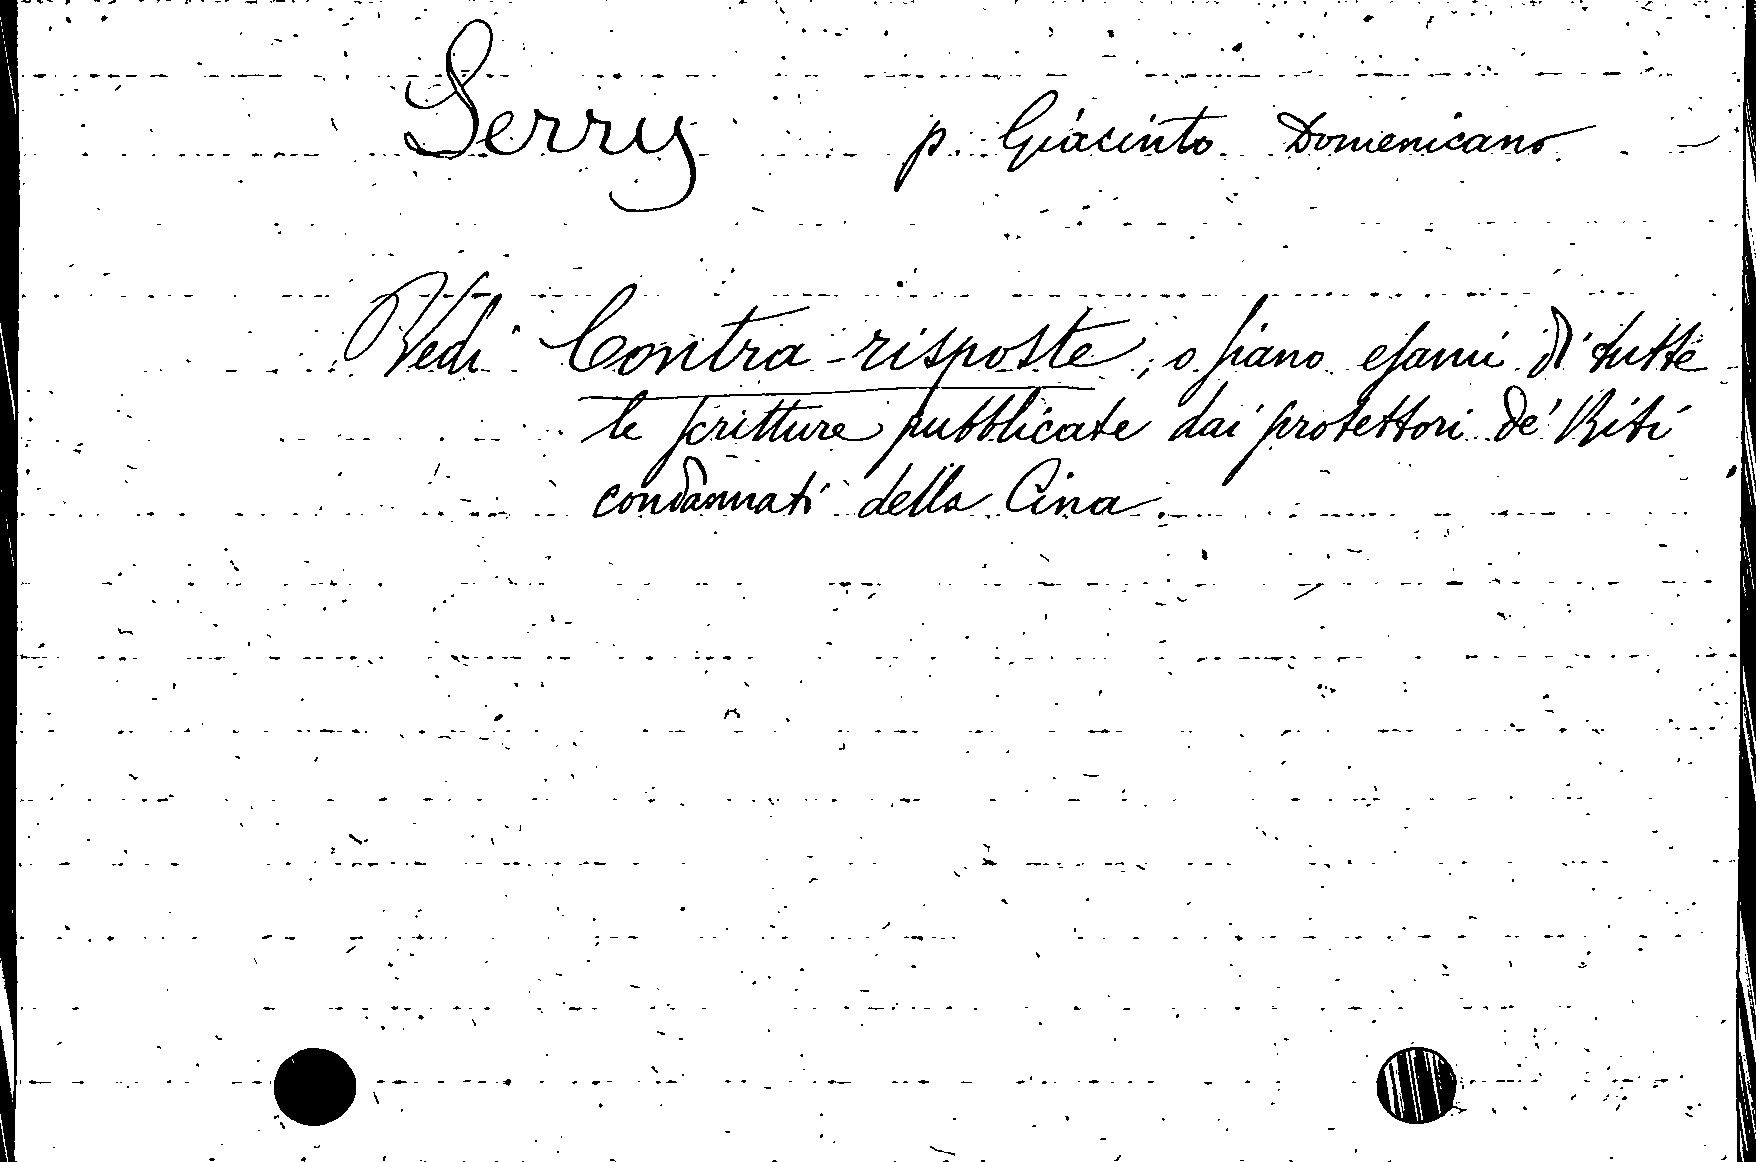 Serry p. Giacinto Domenicano
Vedi Contra-risposte, o siano esami di tutte
le scritture pubblicate dai protettori de' Riti
condannati della Cina.